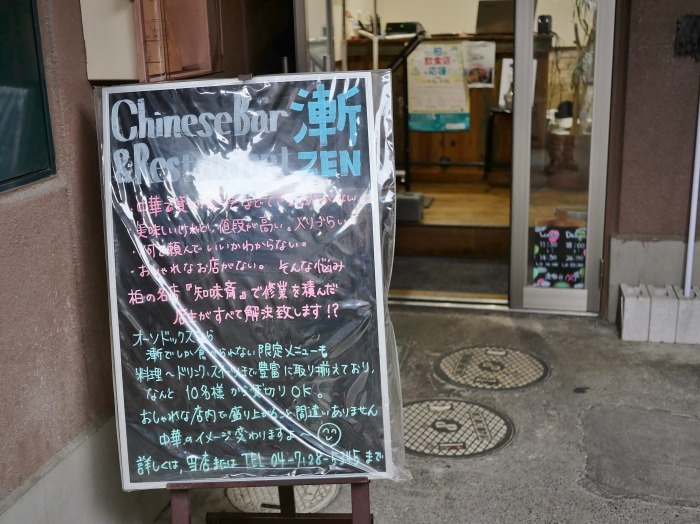 Chinese Bar 漸
& Restaurant ZEN
中華を
・美味しいけれど、値段が高い。入りづらい
・何を頼んでいいかわからない。
・おしゃれなお店がない。そんな悩み
柏の名店『知味斎』で修業を積んだ
店主がすべて解決致します!?
オーソドックス
漸でしか食べられない限定メニューも
料理、ドリンク、スイーツまで豊富に取り揃えており、
なんと10名様から貸切りOK。
おしゃれな店内で盛り上がること間違いありません
中華のイメージ変わりますよ〜
詳しくは、当店または TEL 04-7128-5 45 まで
柏の
飲食店
を応援
11:30
14:30
18:00